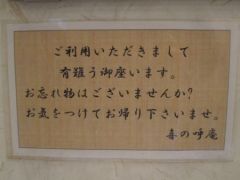 ご利用いただきまして
有難う御座います。
お忘れ物はございませんか?
お気をつけてお帰り下さいませ。
喜の呼庵